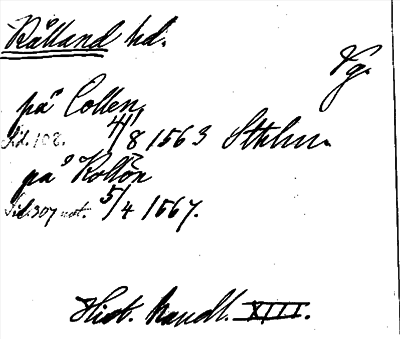 Kålland hd.
Vg.
på Collen,
Sid. 108. 4/8 1563 Sthlm.
på Kollön
Sid. 307 not. 5/4 1567.
Hist. handl. XIII.